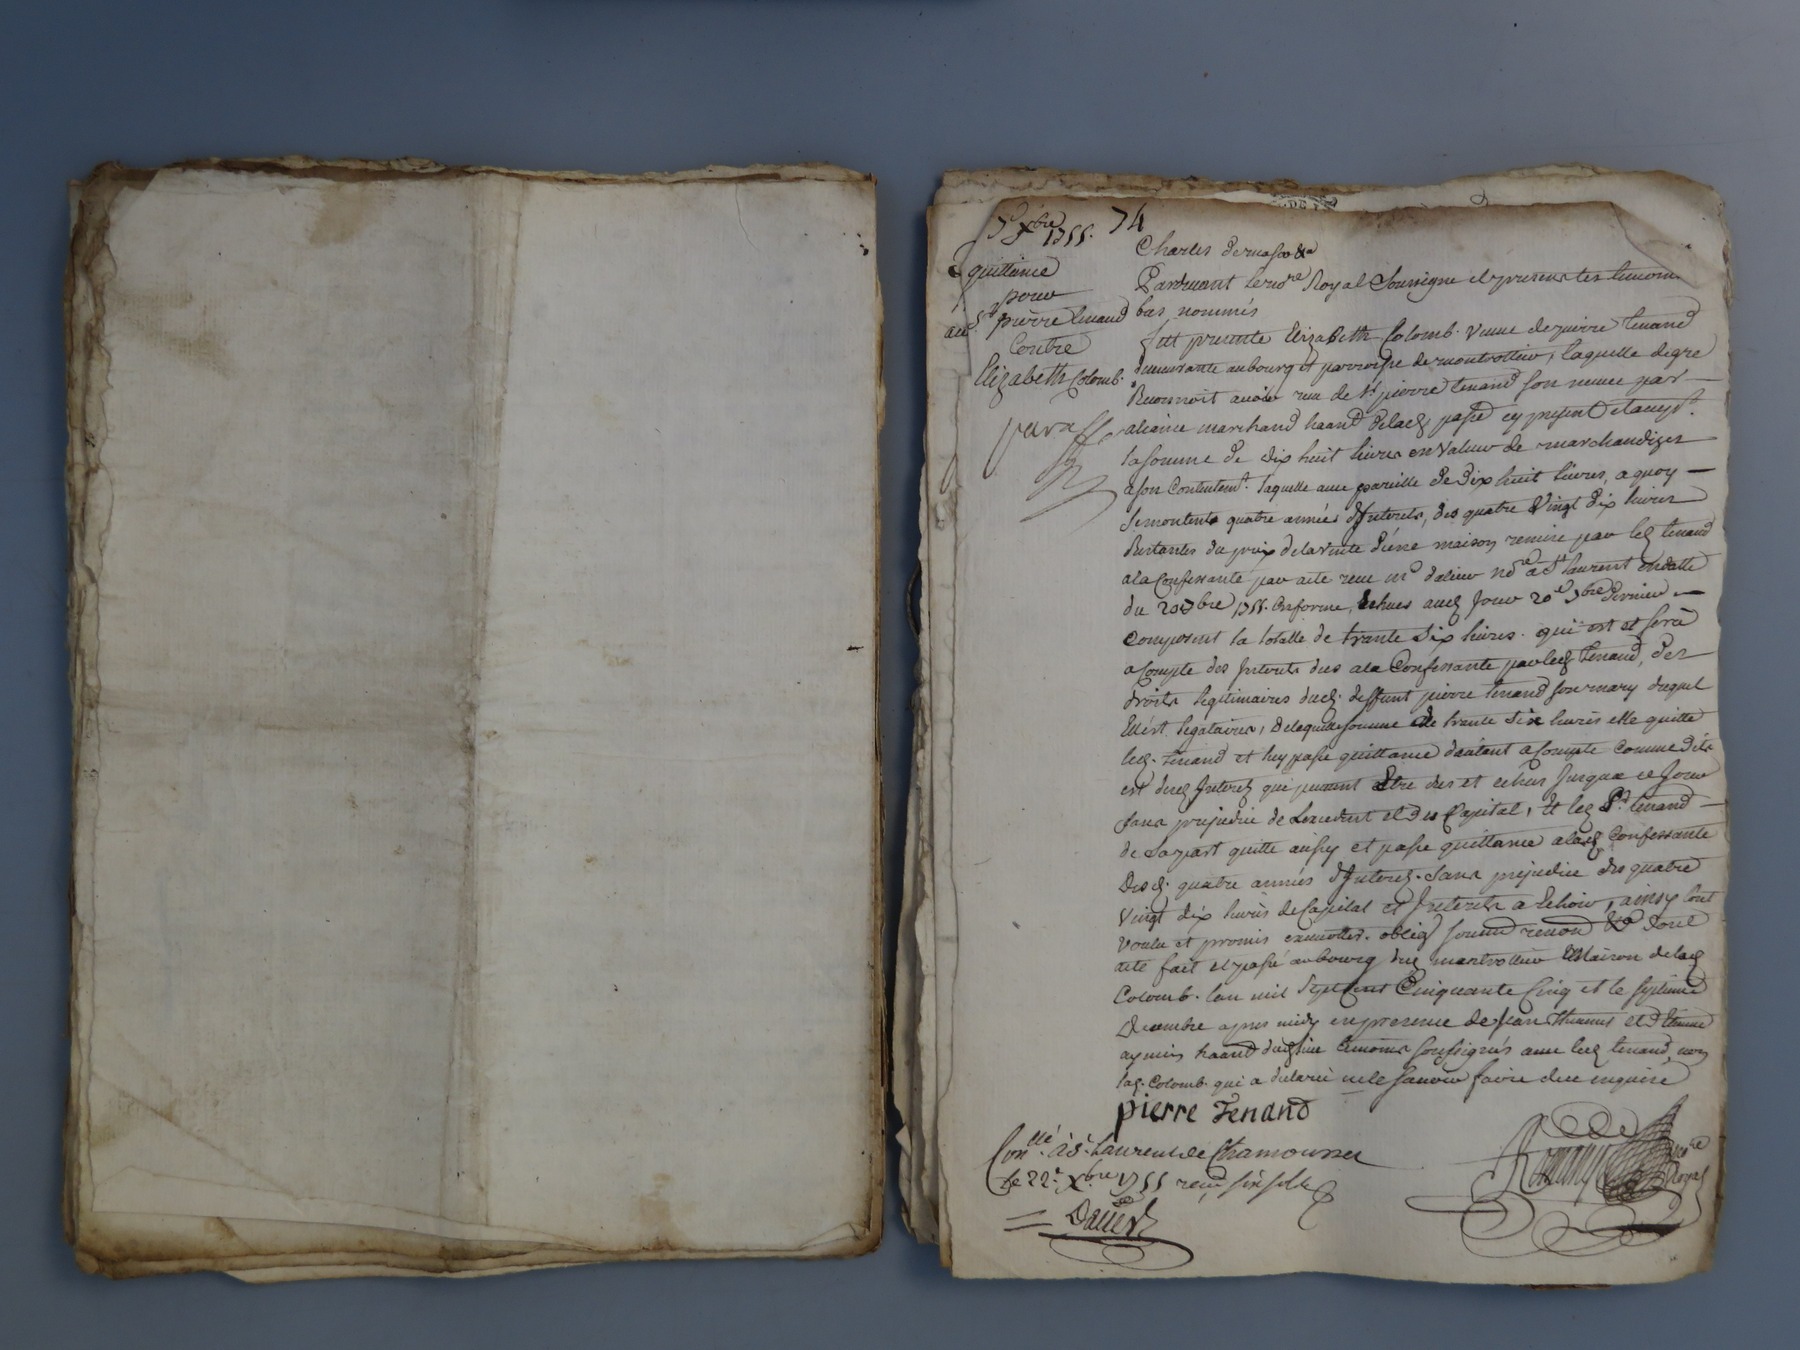 7e Xbre 1755. 74
quittance
pour
Sr pierre tenand
Contre
Elizabeth Colomb.
paraffe
Pardevant le nore Royal Soussigne et presens les temoins
bas nommés
fut presente Elizabeth Colomb. veuve de pierre tenand
demeurante au bourg et parroisse de montrottier, laquelle de gre
Reconnoit avoir reçu de Sr pierre tenand son neveu par
aliance marchand haand delad passé cy present et acept
la somme de dix huit livres en valeur de marchandizes
a son Contentemt. laquelle avec pareille de dix huit livres, a quoy
Se montents quatre années d'Interets, des quatre Vingt dix livres
Restantes du prix de la vente d'une maison remise par led tenand
a la Confessante par acte reçu me dalier nore a St laurent en datte
du 20 1755. Echues aud Jour 20e dernier
Composent la totalle de trante six livres. qui est et sera
a Compte des Interets dus a la Confessante par led tenand, des
droits legitimaires dud. deffunt pierre tenand son mary duquel
legataire, de laquelle somme de trante six livres elle quitte
led. tenand et luy passe quittance d'autant a Compte comme dit
est desd Interets qui peuvent Etre dus et echus Jusqua ce Jour
sans prejudice de et du Capital, Et led Sr. tenand
de sa part quitte aussy et passe quittance a lad Confessante
Desd. quatre années d'Interets. Sans prejudice des quatre
Vingt dix livres de Capital et Interets a Echoir, ainsy tout
voulu et promis executter. oblig soumis renon &a dont
acte fait et passé au bourg dud montrottier Maison de lad
Colomb. l'an mil Sept Cent Cinquante Cinq et le Septieme
Decembre apres midy en presence de Jean et Etienne
haand dud lieu temoins soussignés avec led tenand, non
lad. Colomb. qui a declaré ne le sçavoir faire de ce enquise
pierre Tenand
Conllé. à St Laurent de Chamousset
Le 22e. Xbre 1755 reçu six sols
Dalier
nore
Royal